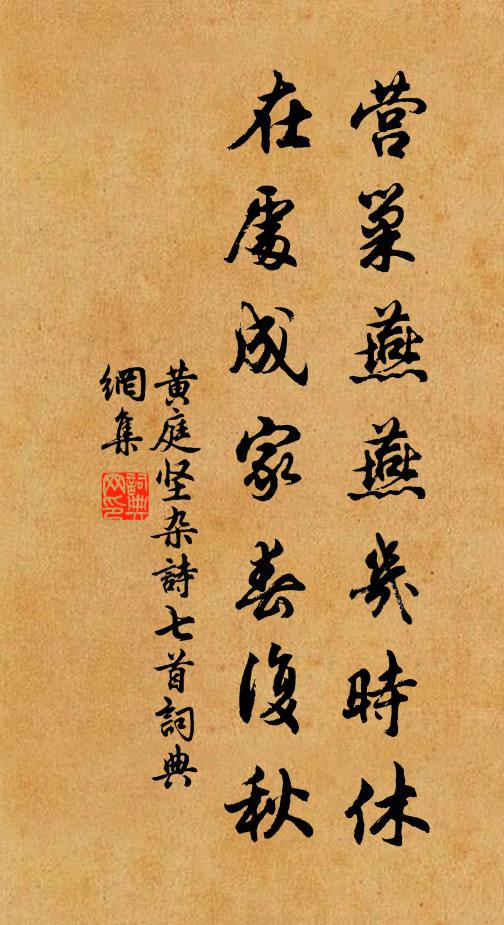 营巢燕燕几時休
在處成家春復秋
黄庭坚杂詩七首詞典
網集
詞典
网印